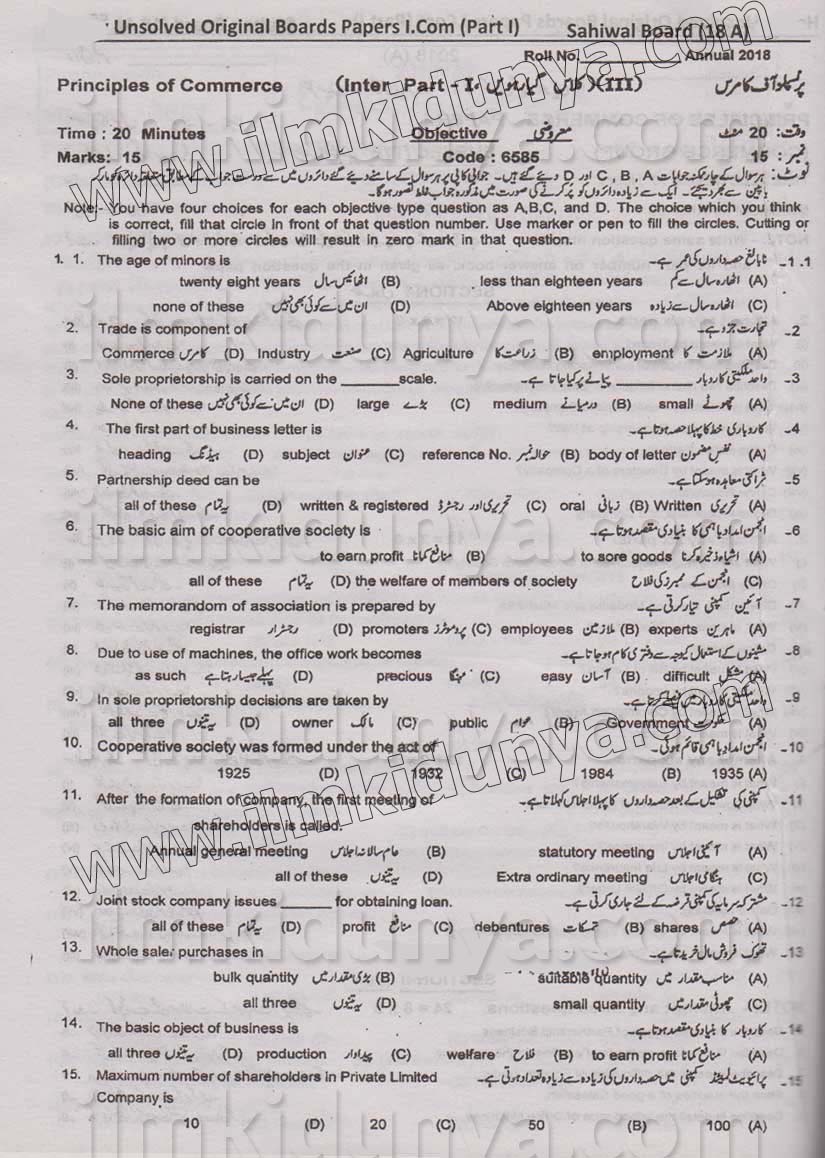 Unsolved Original Boards Papers I.Com (Part I) Sahiwal Board (18 A)
Roll No.__________ Annual 2018
Principles of Commerce (Inter Part - I، کلاس گیارہویں)(III) پرنسپلز آف کامرس
Time : 20 Minutes Objective معروضی وقت: 20 منٹ
Marks: 15 Code : 6585 نمبر: 15
نوٹ:- ہر سوال کے چار ممکنہ جوابات A ، B ، C اور D دیئے گئے ہیں۔ جوابی کاپی پر ہر سوال کے سامنے دیئے گئے دائروں میں سے درست جواب کے مطابق متعلقہ دائرہ کو مارکر
یا پین سے بھر دیجئے۔ ایک سے زیادہ دائروں کو پُر کرنے کی صورت میں مذکورہ جواب غلط تصور ہوگا۔
Note:- You have four choices for each objective type question as A,B,C, and D. The choice which you think
is correct, fill that circle in front of that question number. Use marker or pen to fill the circles. Cutting or
filling two or more circles will result in zero mark in that question.
1. 1. The age of minors is نابالغ حصہ داروں کی عمر ہے۔ 1. 1-
twenty eight years اٹھائیس سال (B) less than eighteen years اٹھارہ سال سے کم (A)
none of these ان میں سے کوئی بھی نہیں (D) Above eighteen years اٹھارہ سال سے زیادہ (C)
2. Trade is component of تجارت جزو ہے۔ 2-
Commerce کامرس (D) Industry صنعت (C) Agriculture زراعت کا (B) employment ملازمت کا (A)
3. Sole proprietorship is carried on the _______scale. واحد ملکیتی کاروبار __________ پیمانے پر کیا جاتا ہے۔ 3-
None of these ان میں سے کوئی بھی نہیں (D) large بڑے (C) medium درمیانے (B) small چھوٹے (A)
4. The first part of business letter is کاروباری خط کا پہلا حصہ ہوتا ہے۔ 4-
heading ہیڈنگ (D) subject عنوان (C) reference No. حوالہ نمبر (B) body of letter نفس مضمون (A)
5. Partnership deed can be شراکتی معاہدہ ہو سکتا ہے۔ 5-
all of these یہ تمام (D) written & registered تحریری اور رجسٹرڈ (C) oral زبانی (B) Written تحریری (A)
6. The basic aim of cooperative society is انجمن امداد باہمی کا بنیادی مقصد ہوتا ہے۔ 6-
to earn profit منافع کمانا (B) to sore goods اشیاء ذخیرہ کرنا (A)
all of these یہ تمام (D) the welfare of members of society انجمن کے ممبرز کی فلاح (C)
7. The memorandom of association is prepared by آئین کمپنی تیار کرتی ہے۔ 7-
registrar رجسٹرار (D) promoters پروموٹرز (C) employees ملازمین (B) experts ماہرین (A)
8. Due to use of machines, the office work becomes مشینوں کے استعمال کیوجہ سے دفتری کام ہو جاتا ہے۔ 8-
as such پہلے جیسا رہتا ہے (D) precious مہنگا (C) easy آسان (B) difficult مشکل (A)
9. In sole proprietorship decisions are taken by واحد ملکیتی کاروبار میں فیصلے کرتا ہے۔ 9-
all three یہ تینوں (D) owner مالک (C) public عوام (B) Government حکومت (A)
10. Cooperative society was formed under the act of انجمن امداد باہمی قائم ہوئی۔ 10-
1925 (D) 1932 (C) 1984 (B) 1935 (A)
11. After the formation of company, the first meeting of کمپنی کی تشکیل کے بعد حصہ داروں کا پہلا اجلاس کہلاتا ہے۔ 11-
shareholders is called.
Annual general meeting عام سالانہ اجلاس (B) statutory meeting آئینی اجلاس (A)
all of these یہ تینوں (D) Extra ordinary meeting ہنگامی اجلاس (C)
12. Joint stock company issues ______ for obtaining loan. مشترکہ سرمایہ کی کمپنی قرضہ کے لئے جاری کرتی ہے۔ 12-
all of these یہ تمام (D) profit منافع (C) debentures تمسکات (B) shares حصص (A)
13. Whole sale. purchases in تھوک فروش مال خریدتا ہے۔ 13-
bulk quantity بڑی مقدار میں (B) suitable quantity مناسب مقدار میں (A)
all three یہ تینوں (D) small quantity چھوٹی مقدار میں (C)
14. The basic object of business is کاروبار کا بنیادی مقصد ہوتا ہے۔ 14-
all three یہ تینوں (D) production پیداوار (C) welfare فلاح (B) to earn profit منافع کمانا (A)
15. Maximum number of shareholders in Private Limited پرائیویٹ لمیٹڈ کمپنی میں حصہ داروں کی زیادہ سے زیادہ تعداد ہوتی ہے۔ 15-
Company is
10 (D) 20 (C) 50 (B) 100 (A)
www.ilmkidunya.com